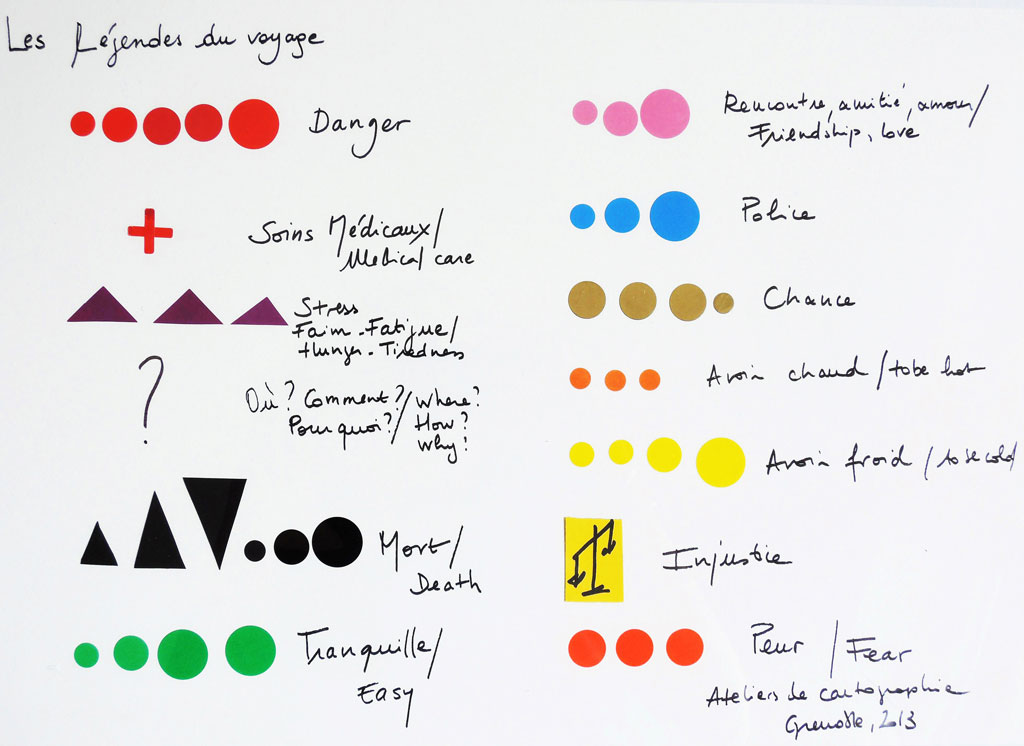 Les Légendes du voyage
Danger
Soins Médicaux/
Medical care
Stress
Faim - Fatigue/
Hunger - Tiredness
?
Où? Comment?/ Where?
Pourquoi?/ How?
Why?
Mort/
Death
Tranquille/
Easy
Rencontre, amitié, amour/
Friendship, love
Police
Chance
Avoir chaud /to be hot
Avoir froid / to be cold/
Injustice
Peur / Fear
Ateliers de cartographie
Grenoble, 2013